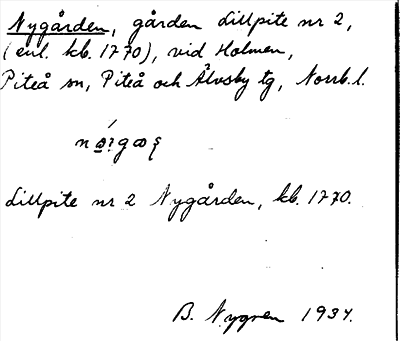 Nygården, gården Lillpite nr 2,
(enl. kb. 1770), vid Holmen,
Piteå sn, Piteå och Älvsby tg, Norrb. l.
Lillpite nr 2 Nygården, kb. 1770.
B. Nygren 1934.